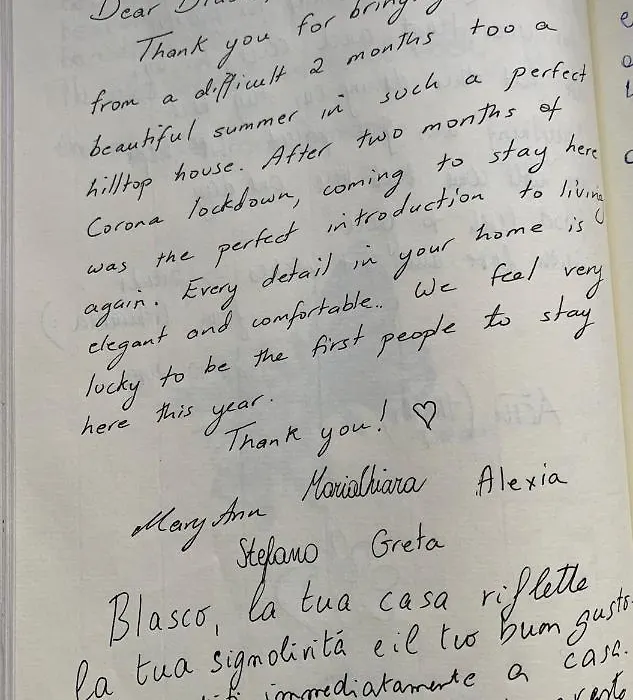 Dear
Thank you for
from a difficult 2 months too a
beautiful summer in such a perfect
hilltop house. After two months of
Corona lockdown, coming to stay here
was the perfect introduction to living
again. Every detail in your home is
elegant and comfortable.. We feel very
lucky to be the first people to stay
here this year.
Thank you! ♡
MariaChiara Alexia
Mary Ann
Stefano Greta
Blasco, la tua casa riflette
la tua signolirità e il tuo buon gusto.
immediatamente a casa.